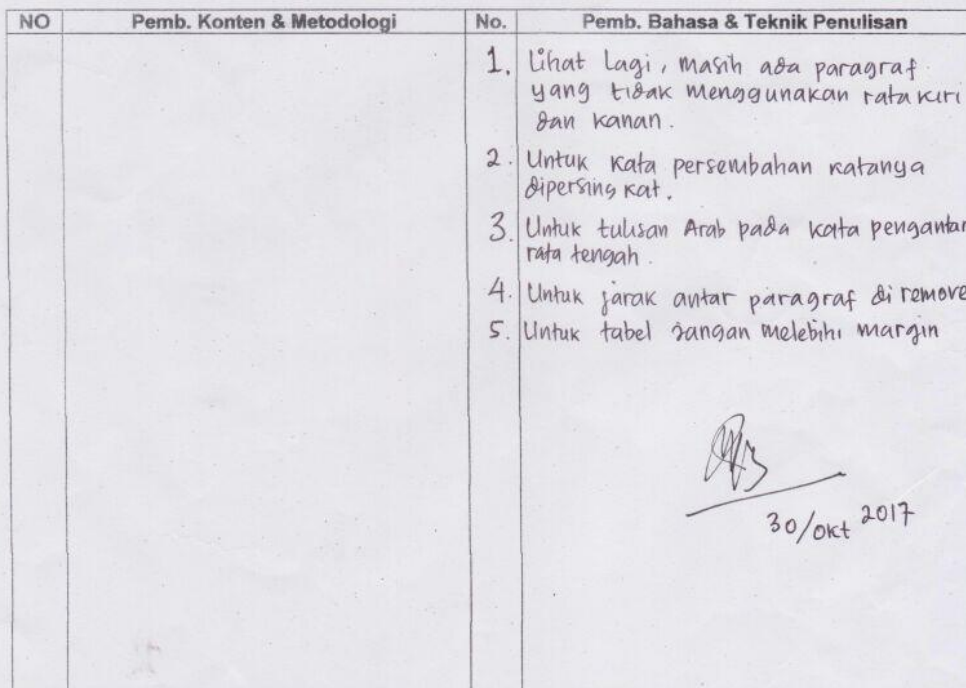 NO Pemb. Konten & Metodologi No. Pemb. Bahasa & Teknik Penulisan
1. Lihat Lagi, masih ada paragraf
yang tidak menggunakan rata kiri
dan kanan.
2. Untuk kata persembahan katanya
dipersingkat.
3. Untuk tulisan Arab pada kata pengantar
rata tengah.
4. Untuk jarak antar paragraf di remove
5. Untuk tabel jangan melebihi margin
30/okt 2017